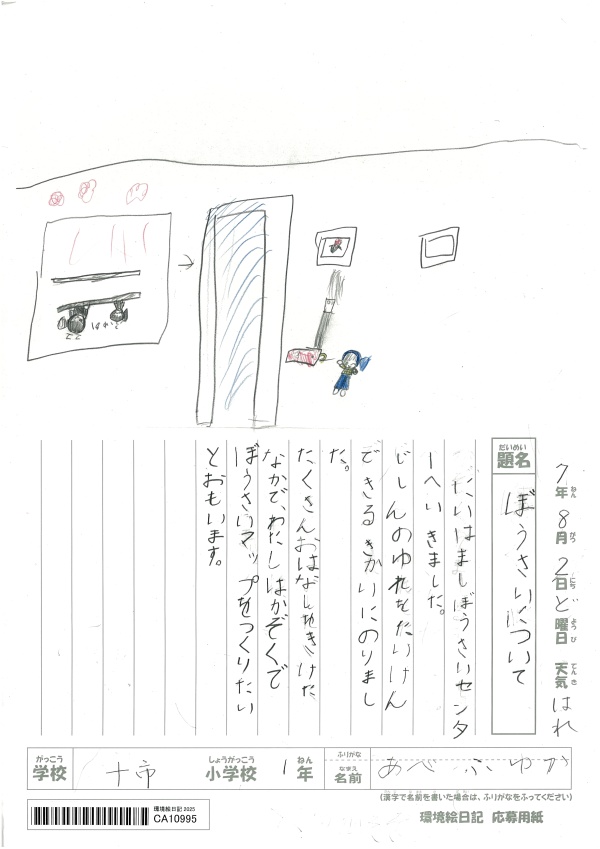 7年ねん8月がつ2日にちど曜日ようび 天気てんき はれ
題名だいめい
ぼうさいについて
ーへいきました。
じしんのゆれをたいけん
できるきかいにのりまし
た。
たくさんおはなしをきけた
なかで、わたしはかぞくで
ぼうさいマップをつくりたい
とおもいます。
がっこう しょうがっこう ねん ふりがな
学校 十市 小学校 1年 なまえ 名前 あべ ふゆか
(漢字で名前を書いた場合は、ふりがなをふってください)
環境絵日記 2025
CA10995
環境絵日記 応募用紙